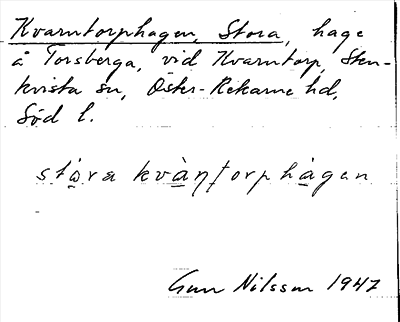 Kvarntorphagen, Stora, hage
å Torsberga, vid Kvarntorp, Sten-
kvista sn, Öster-Rekarne hd,
Söd l.
stóra kvàṇtorphàgen
Gun Nilsson 1947